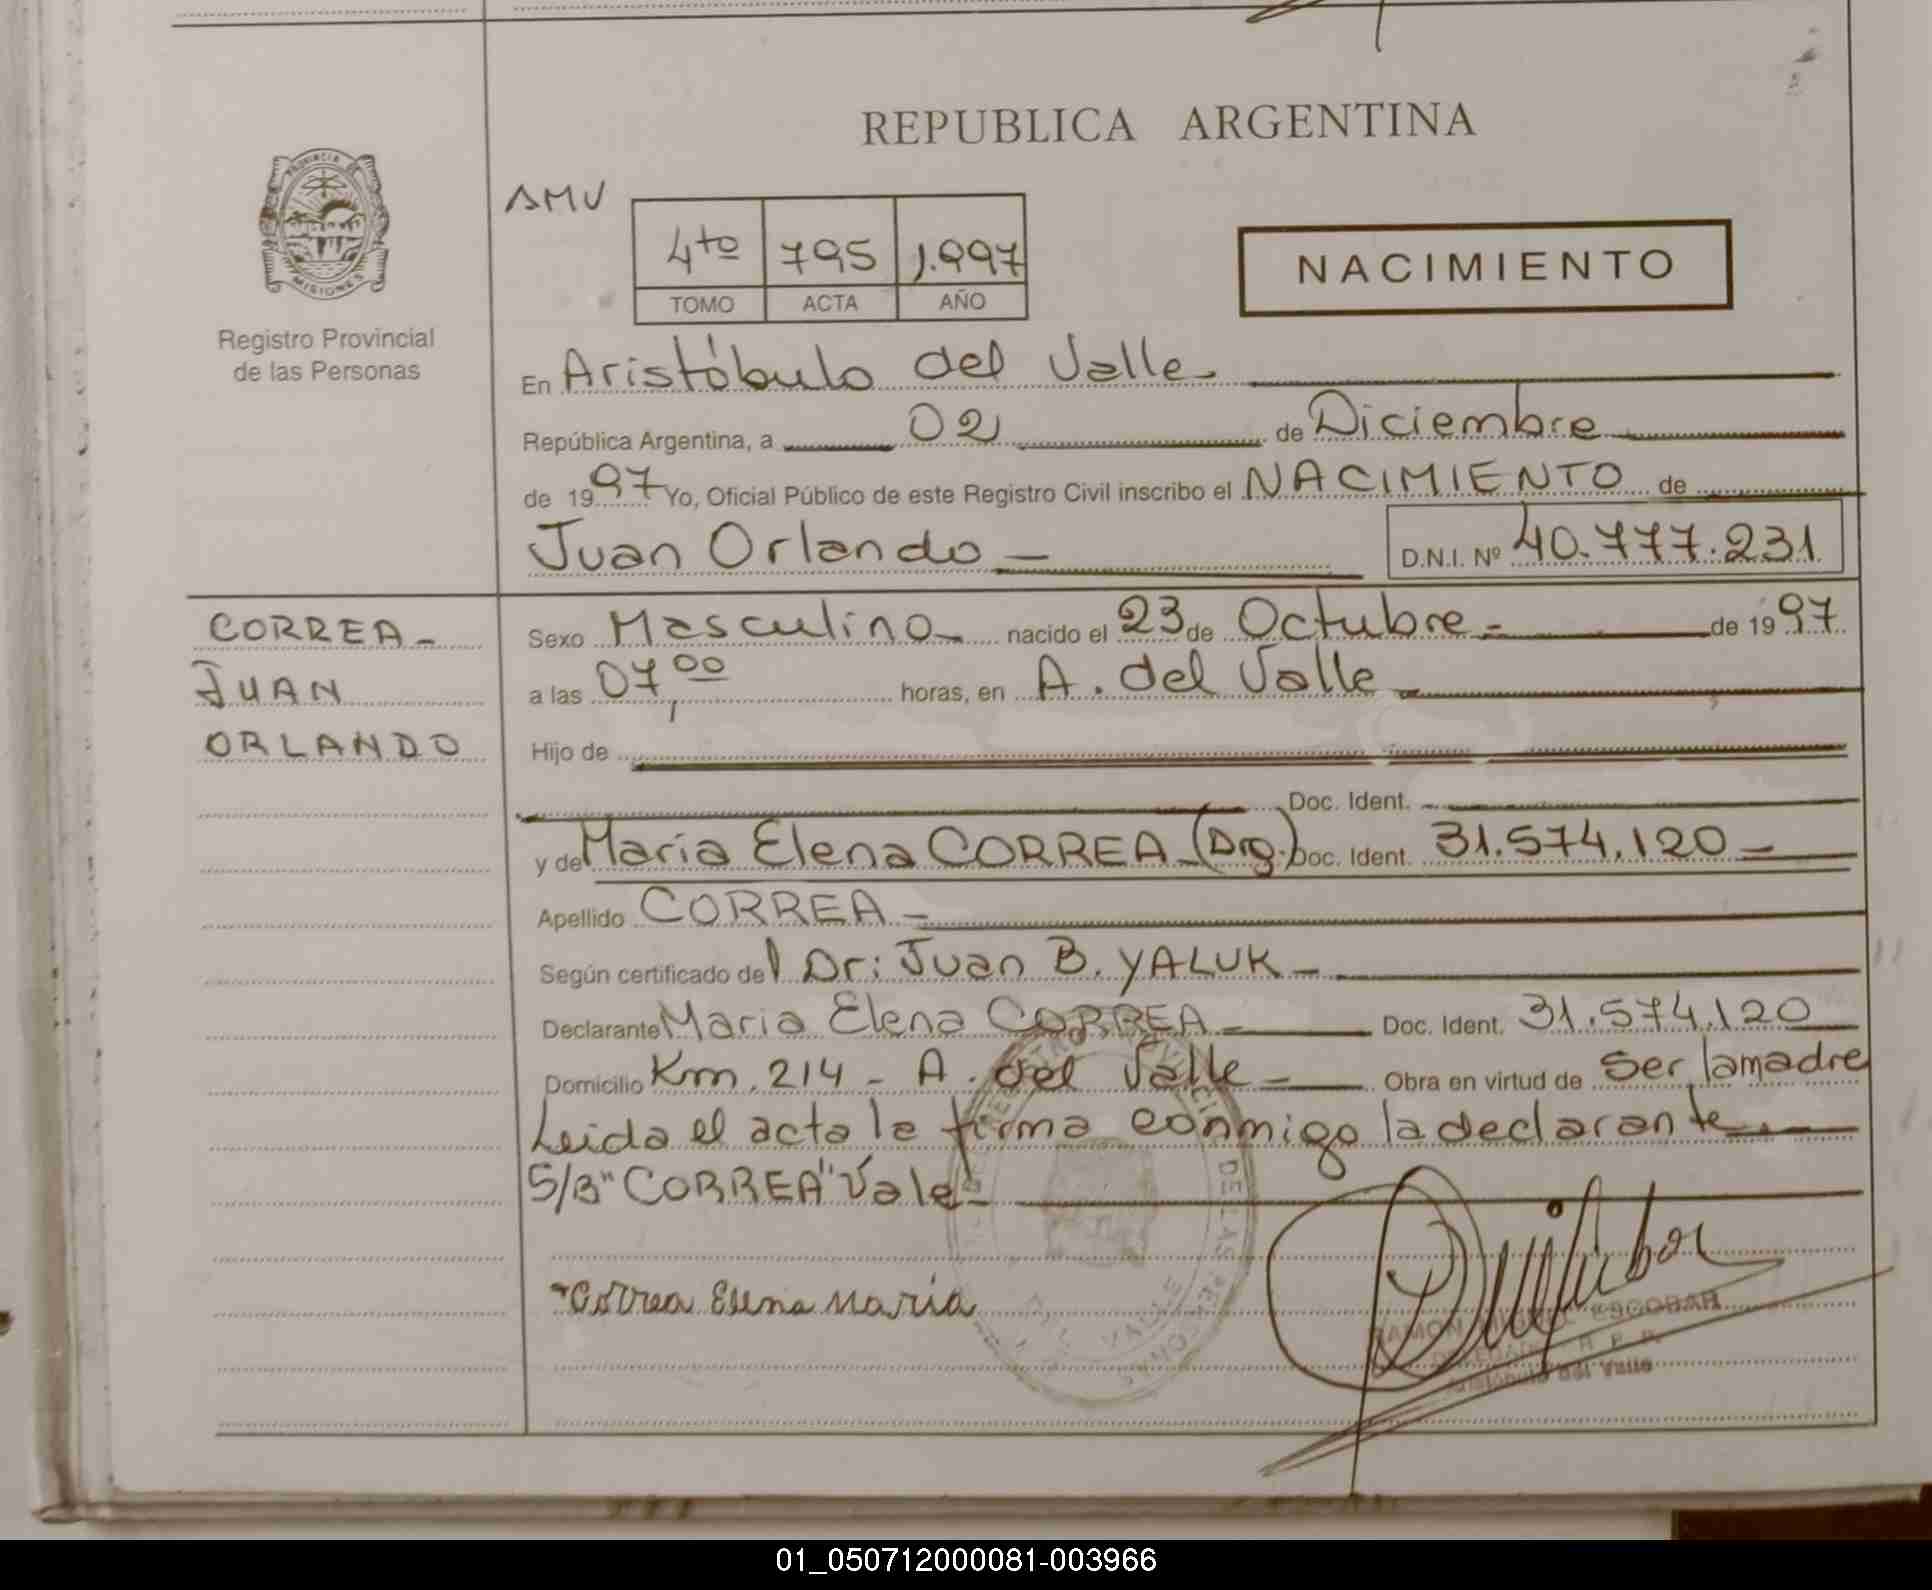 REPUBLICA ARGENTINA
PROVINCIA DE
MISIONES
Registro Provincial
de las Personas
AMV
4to 795 1.997
TOMO ACTA AÑO
NACIMIENTO
En Aristóbulo del Valle
República Argentina, a 02 de Diciembre
de 1997 Yo, Oficial Público de este Registro Civil inscribo el NACIMIENTO de
Juan Orlando D.N.I. Nº 40.777.231
CORREA
JUAN
ORLANDO
Sexo Masculino nacido el 23 de Octubre de 1997
a las 07,00 horas, en A. del Valle
Hijo de
Doc. Ident.
y de Maria Elena CORREA (Arg.) Doc. Ident. 31.574.120
Apellido CORREA
Según certificado del Dr: Juan B. YALUK
Declarante Maria Elena CORREA Doc. Ident. 31.574.120
Domicilio Km. 214 - A. del Valle Obra en virtud de ser la madre
Leida el acta la firma conmigo la declarante.
S/B "CORREA" Vale
Correa Elena María
RAMON MIGUEL ESCOBAR
DELEGADO R. P. P.
Aristóbulo del Valle
01_050712000081-003966